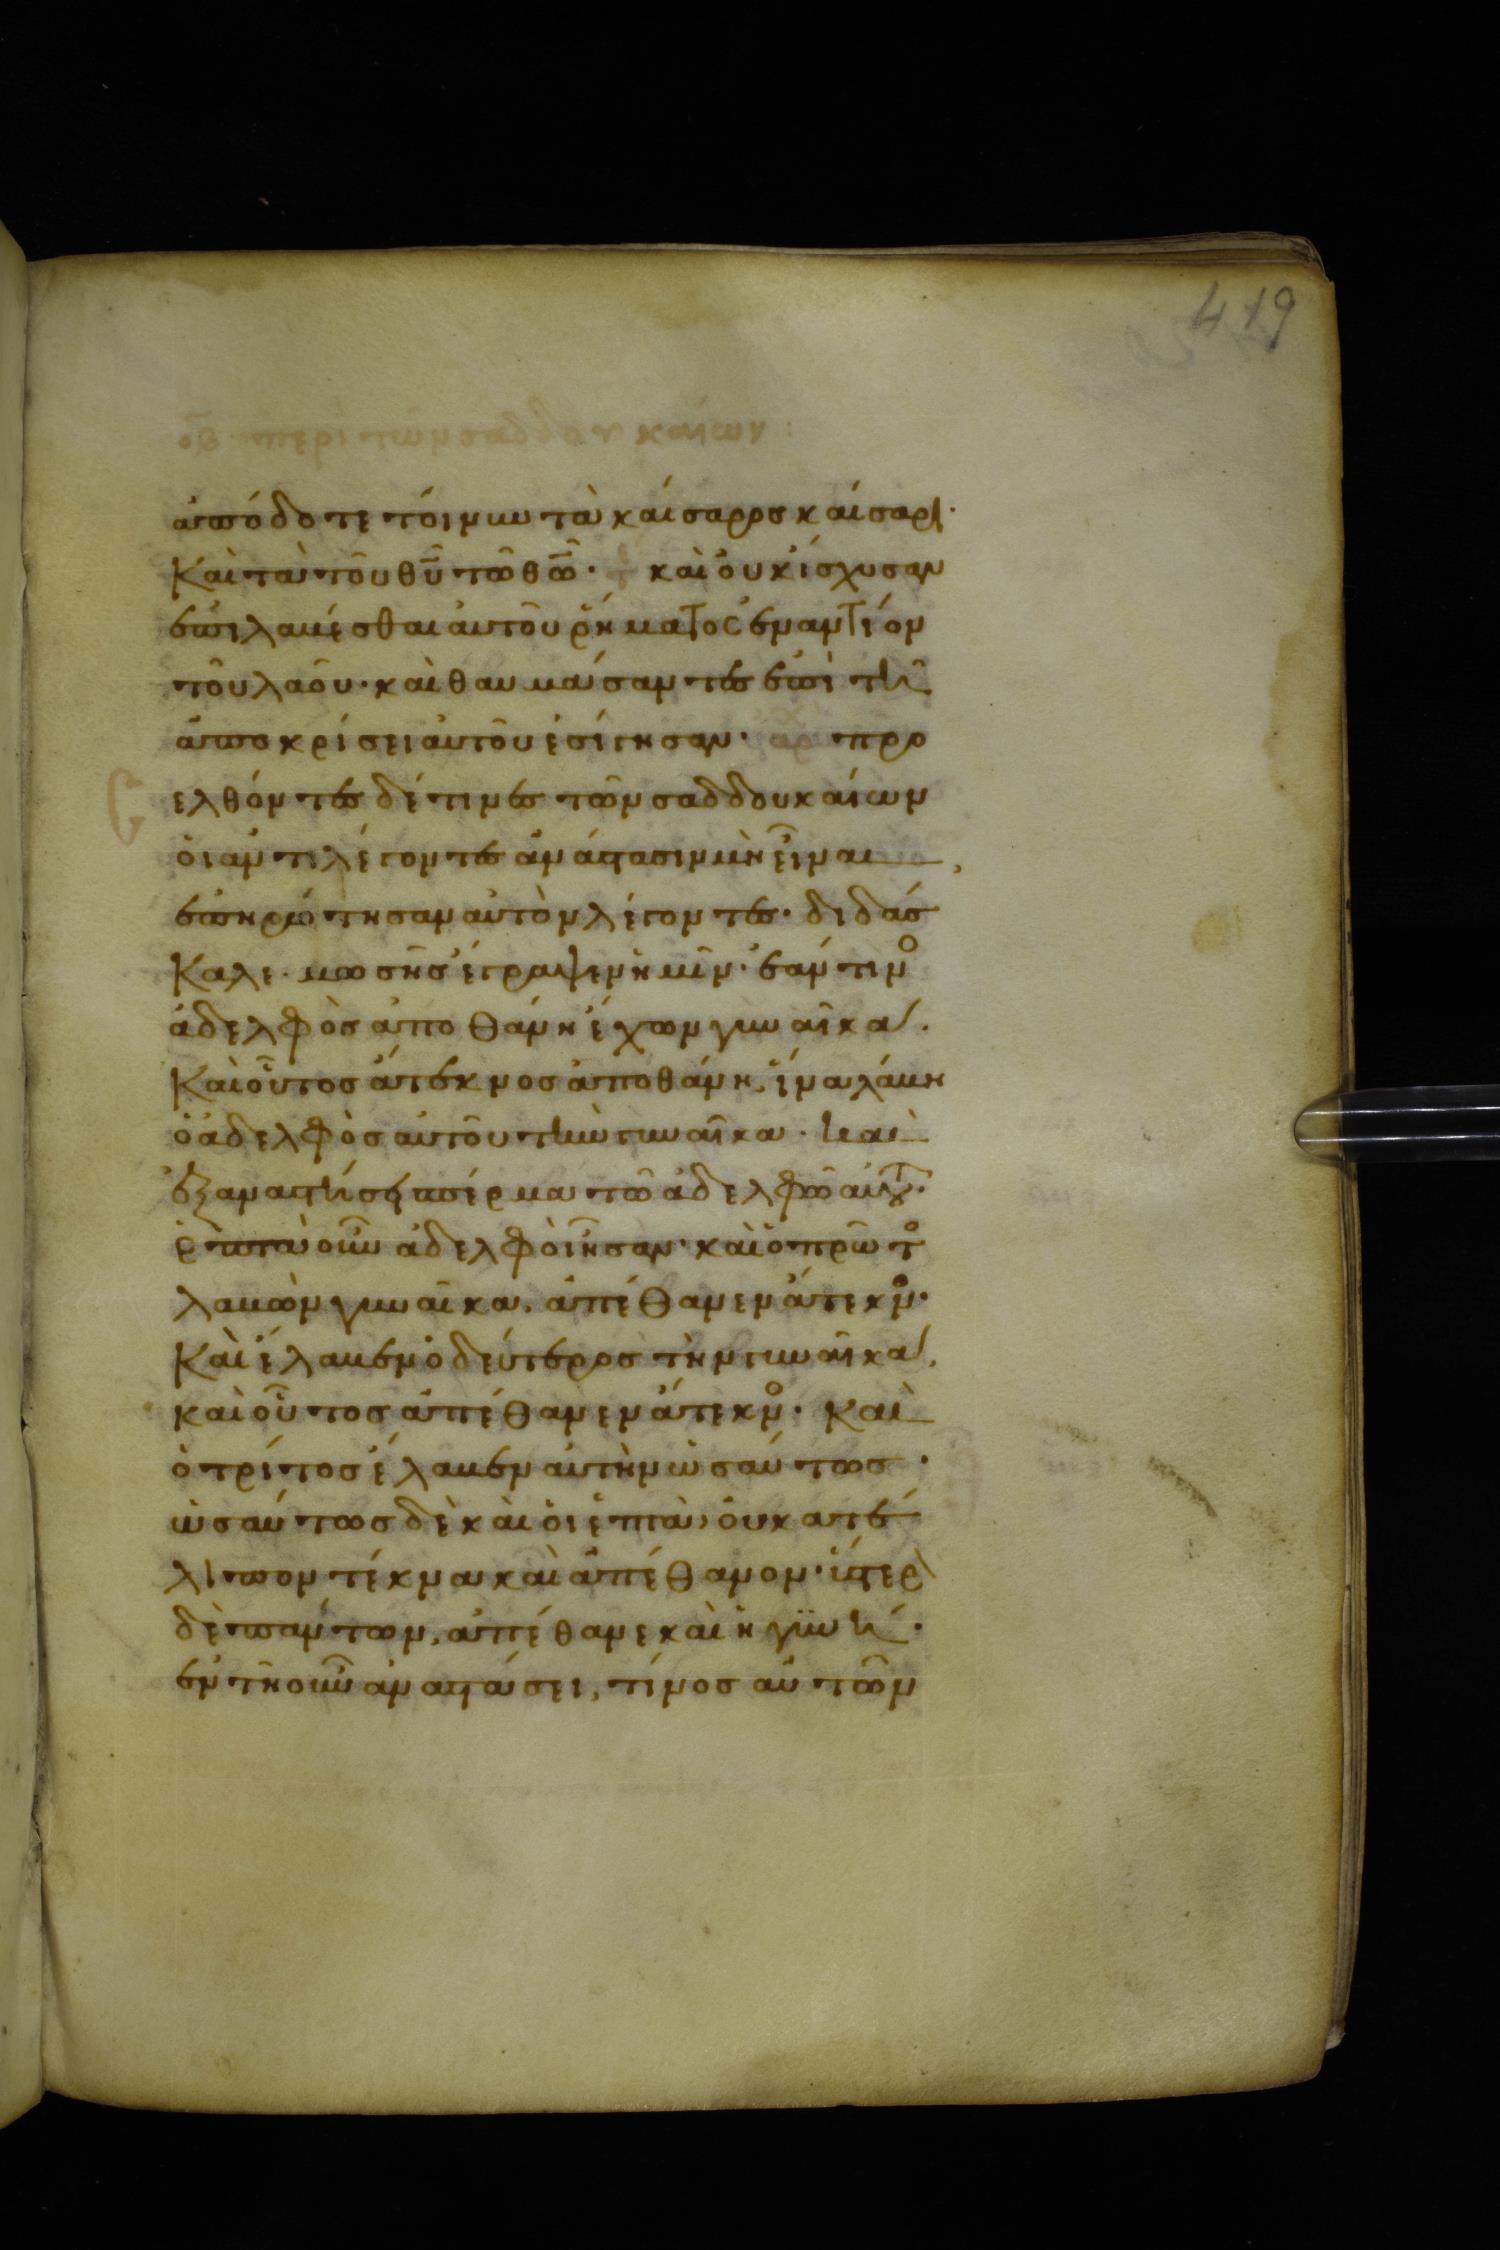 419
οβ περι τῶν σαδδουκαίων:
ἀπόδοτε τοίνυν τὰ καίσαρος καίσαρι·
Καὶ τὰ τοῦ θῦ τῶ θῶ· τε καὶ οὐκ ἴσχυσαν
ἐπιλαβέσθαι αὐτοῦ ῥήματος ἐναντίον
τοῦ λαοῦ· καὶ θαυμάσαντες ἐπὶ τῆ
ἀποκρίσει αὐτοῦ ἐσίγησαν· αρ προ
ελθόντες δέ τινες τῶν σαδδουκαίων
ὁι ἀντιλέγοντες ἀνάστασιν μὴ εἶναι,
ἐπηρώτησαν αὐτὸν λέγοντες· διδάσ
Καλε· μωσῆς ἔγραψεν ἡμῖν· ἐάν τινο
ἀδελφὸς ἀποθάνη ἔχων γυναῖκα·
Καὶ οὗτος ἄτεκνος ἀποθάνη, ἵνα λάβη
ὁ ἀδελφὸς αὐτοῦ τὴν γυναῖκα· καὶ
ἐξαναστήση σπέρμα τῶ ἀδελφῶ αὐτοῦ·
ἑπτὰ οὖν ἀδελφοὶ ἦσαν· καὶ ὁ πρῶτο
λαβὼν γυναῖκα, ἀπέθανεν ἄτεκνο·
Καὶ ἔλαβεν ὁ δεύτερος τὴν γυναῖκα,
καὶ οὗτος ἀπέθανεν ἄτεκνο· Καὶ
ὁ τρίτος ἔλαβεν αὐτὴν ὡσαύτως·
ὡσαύτως δὲ καὶ ὁι ἑπτὰ, οὐ κατέ
λιπον τέκνα καὶ ἀπέθανον· ὕστερ
δὲ πάντων, ἀπέθανε καὶ ἡ γϋνή·
ἐν τῆ οὖν ἀναστάσει, τίνος αὐτῶν